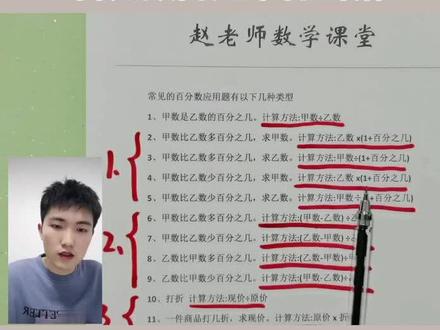 赵老师数学课堂
常见的百分数应用题有以下几种类型
1、甲数是乙数的百分之几。计算方法:甲数÷乙数
2、甲数比乙数多百分之几，求甲数。计算方法:乙数 x(1+百分之几)
3、甲数比乙数多百分之几，求乙数。计算方法:甲数÷(1+百分之几)
4、甲数比乙数少百分之几，求甲数。计算方法:乙数 x(1+百分之几)
5、甲数比乙数少百分之几，求乙数。计算方法:甲数÷ 百分之几)
6、甲数比乙数多百分之几。计算方法:(甲数-乙数)÷
7、甲数比乙数少百分之几。计算方法:(乙数-甲数)÷
8、乙数比甲数多百分之几。计算方法:(乙数-甲数)÷
9、乙数比甲数少百分之几。计算方法:(甲数-乙数)÷
10、打折 计算方法:现价÷原价
11、一件商品打几折，求现价。计算方法:原价 x 折
1.
2.